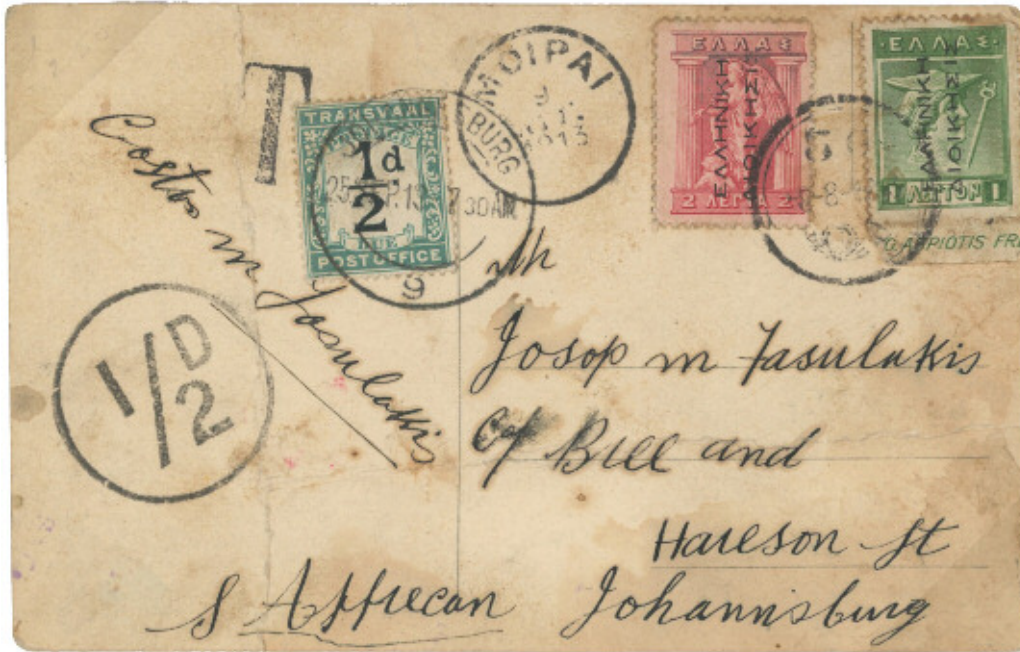 T
TRANSVAAL
½d
DUE
POST OFFICE
BURG
25 P.13 7 30AM
9
ΜΟΙΡΑΙ
ΕΛΛΑΣ
ΕΛΛΗΝΙΚΗ
ΔΙΟΙΚΗΣΙΣ
2 ΛΕΠΤΑ 2
ΕΛΛΑΣ
ΕΛΛΗΝΙΚΗ
ΔΙΟΙΚΗΣΙΣ
1 ΛΕΠΤΟΝ 1
G. ASPIOTIS FRE
Costas m Josulakis
1/2 D
Mr
Josop m Fasulakis
C/ Bill and
Hareson St
S Affrecan Johannisburg